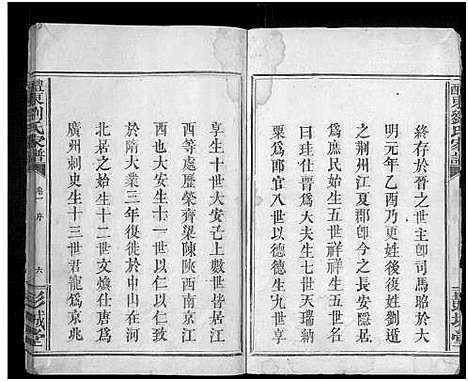 醴東劉氏家譜
彭城堂
終存於晉之世主卽司馬昭於大
明元年乙酉乃更姓後姓劉遁
之荆州江夏郡卽今之長沙善
爲庶民始生五世祥五世始六世
曰珪仕晉爲大夫生七世天賜官
粟爲郎官八世以德德生九世享
享生十世大安已上數世皆居江
西等處歷榮齊梁陳陝西南京居
也大安生十一世以仁以行以致
於隋大業三年復徙於中山在河
北居之以仁生十二世文煥仕唐爲
廣州刺史生十三世君龍爲京兆
醴東劉氏家譜
卷一 序
六
彭城堂